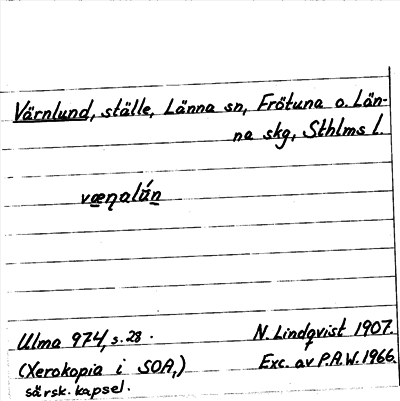 Värnlund, ställe, Länna sn, Frötuna o. Län-
na skg, Sthlms l.
væɳalún
Ulma 974, s. 28. N. Lindqvist 1907.
(Xerokopia i SOA,) Exc. av P.A.W. 1966.
särsk. kapsel.